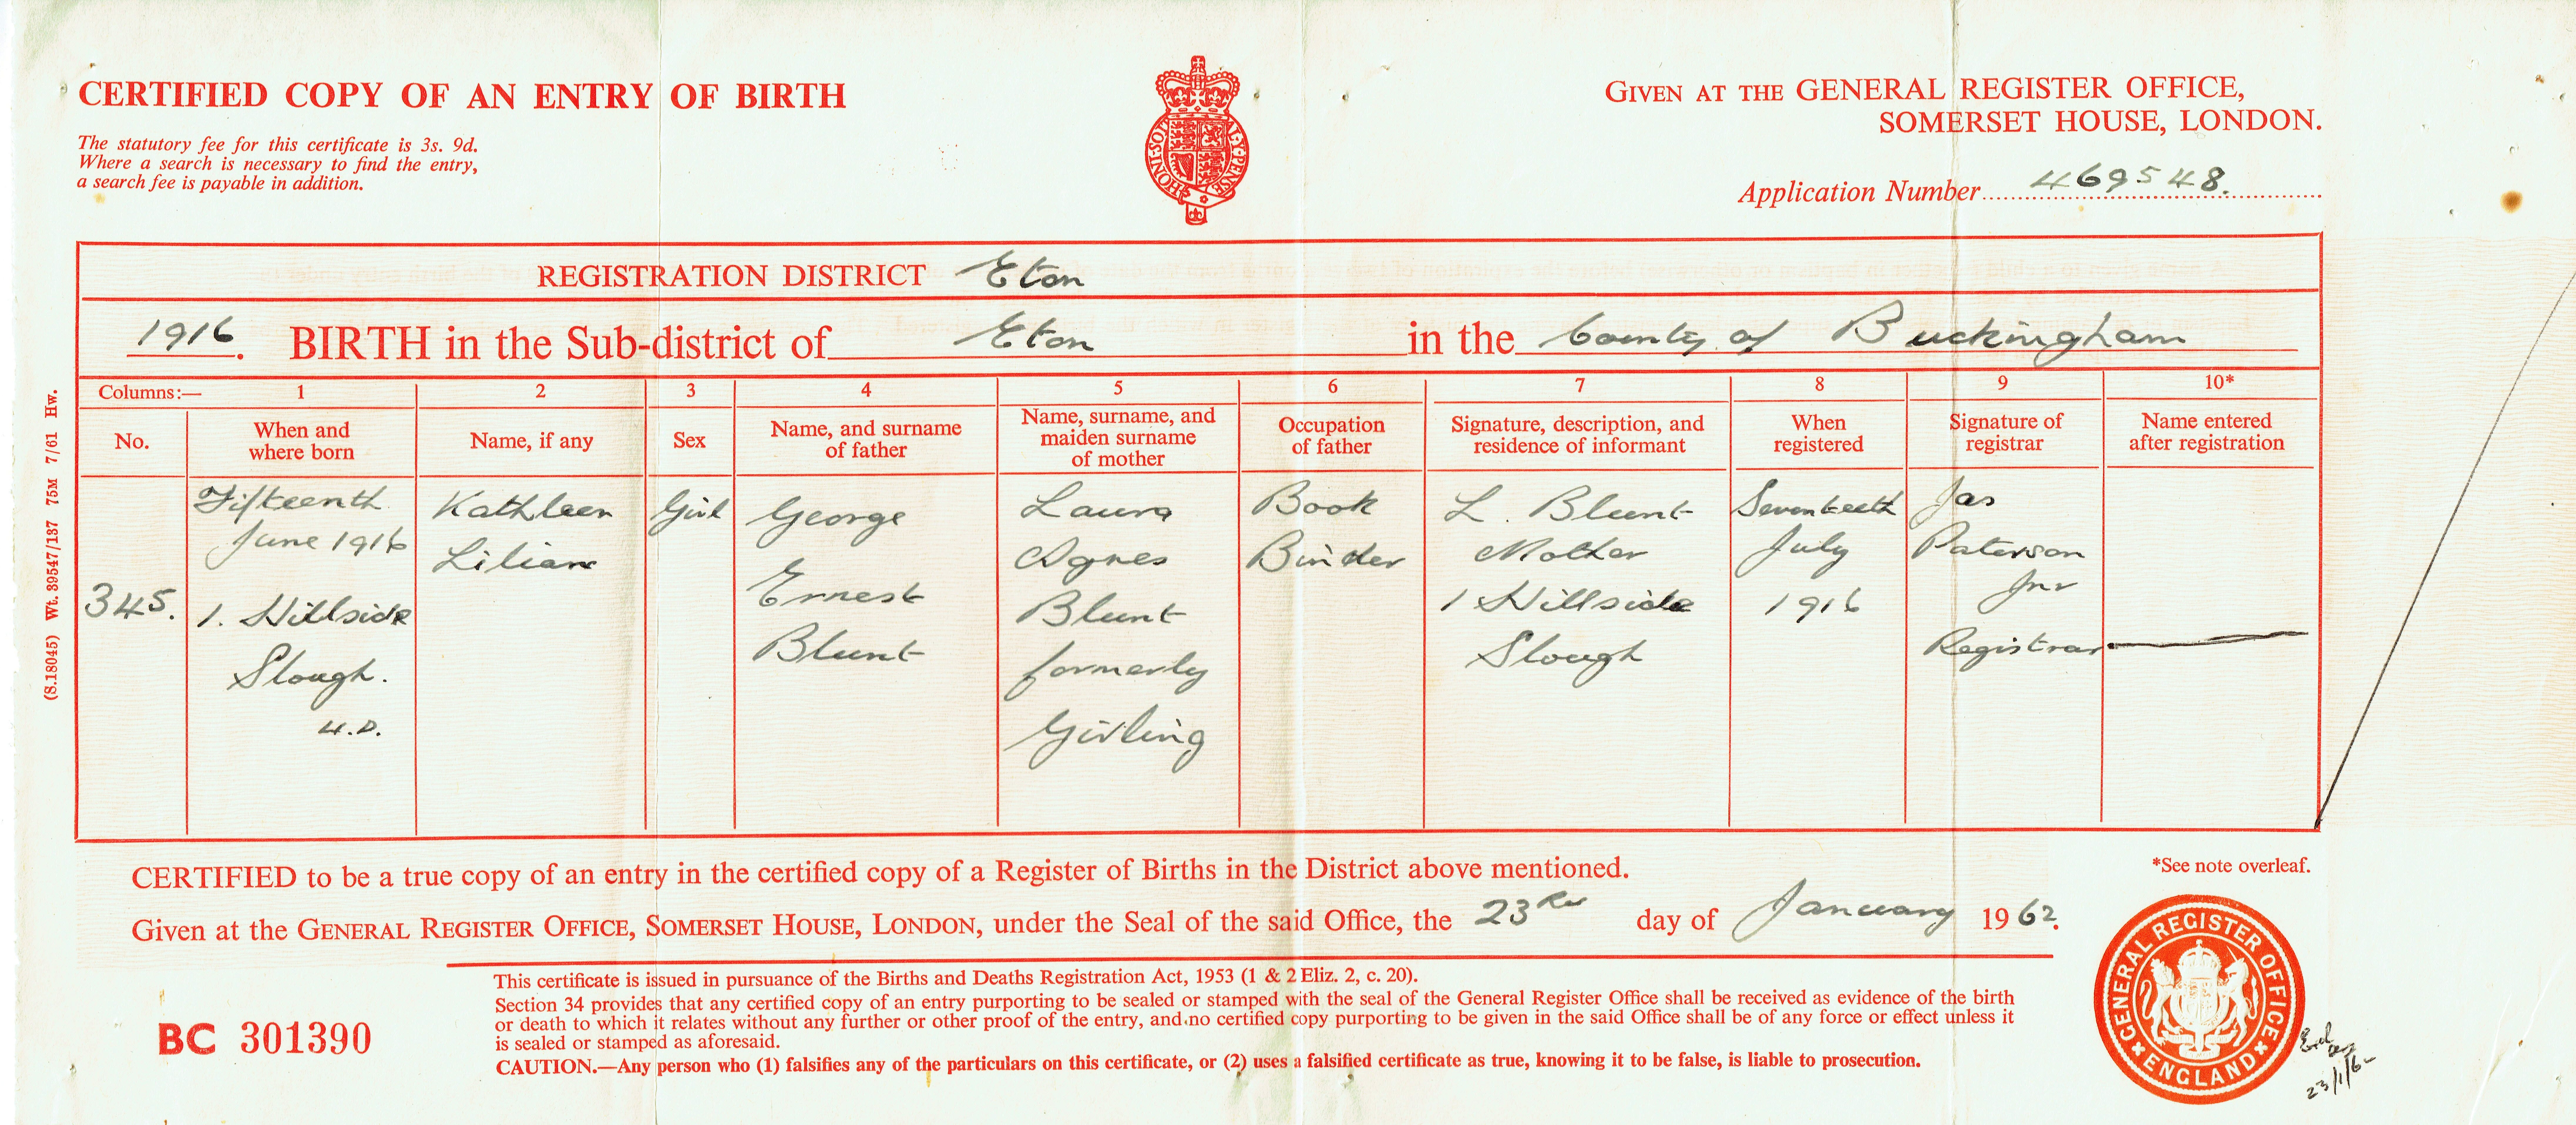 CERTIFIED COPY OF AN ENTRY OF BIRTH
The statutory fee for this certificate is 3s. 9d.
Where a search is necessary to find the entry,
a search fee is payable in addition.
HONI SOI
MAL Y PENSE
GIVEN AT THE GENERAL REGISTER OFFICE,
SOMERSET HOUSE, LONDON.
Application Number 469548.
REGISTRATION DISTRICT Eton
1916. BIRTH in the Sub-district of Eton in the County of Buckingham
Columns:— 1 2 3 4 5 6 7 8 9 10*
No.
When and
where born
Name, if any
Sex
Name, and surname
of father
Name, surname, and
maiden surname
of mother
Occupation
of father
Signature, description, and
residence of informant
When
registered
Signature of
registrar
Name entered
after registration
345.
Fifteenth
June 1916
1. Hillside
Slough.
U.D.
Kathleen
Lilian
Girl
George
Ernest
Blunt
Laura
Agnes
Blunt
formerly
Girling
Book
Binder
L. Blunt
Mother
1 Hillside
Slough
Seventeeth
July
1916
Jas
Paterson
Jnr
Registrar
(S.18045) Wt. 39547/137 75M 7/61 Hw.
CERTIFIED to be a true copy of an entry in the certified copy of a Register of Births in the District above mentioned.
*See note overleaf.
Given at the GENERAL REGISTER OFFICE, SOMERSET HOUSE, LONDON, under the Seal of the said Office, the 23rd day of January 1962.
This certificate is issued in pursuance of the Births and Deaths Registration Act, 1953 (1 & 2 Eliz. 2, c. 20).
Section 34 provides that any certified copy of an entry purporting to be sealed or stamped with the seal of the General Register Office shall be received as evidence of the birth
or death to which it relates without any further or other proof of the entry, and no certified copy purporting to be given in the said Office shall be of any force or effect unless it
is sealed or stamped as aforesaid.
CAUTION.—Any person who (1) falsifies any of the particulars on this certificate, or (2) uses a falsified certificate as true, knowing it to be false, is liable to prosecution.
BC 301390
GENERAL REGISTER OFFICE
ENGLAND
23/1/62